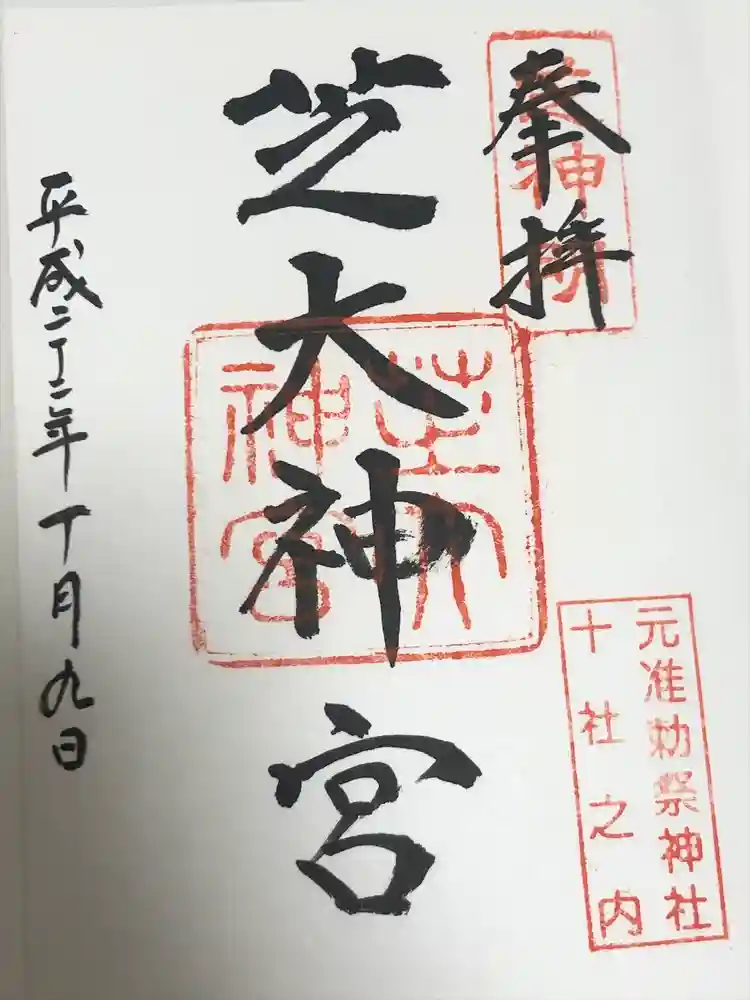 奉拝
芝大神宮
芝大
神宮
元准勅祭神社
十社之内
平成二十二年十月九日